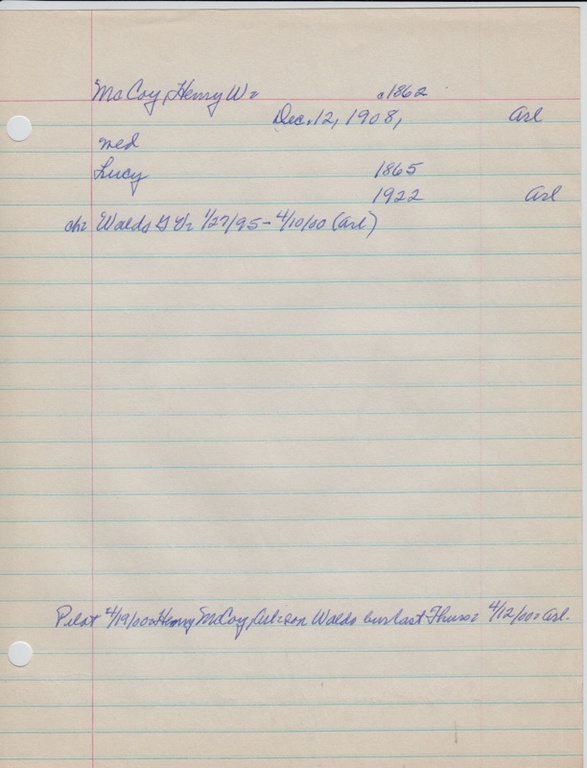 McCoy, Henry W: c1862
Dec. 12, 1908, Arl
med
Lucy 1865
1922 Arl
ch: Waldo G 1/27/95 - 4/10/00 (Arl)
Pilot 4/19/00: Henry McCoy, Arl: son Waldo bur last Thurs: 4/12/00: Arl.